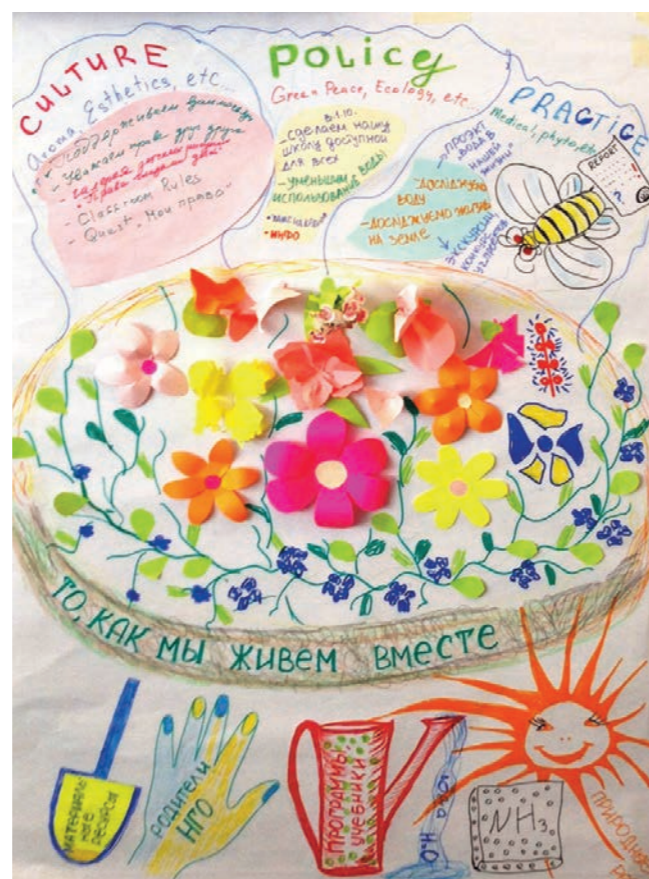 CULTURE
Aroma, Esthetics, etc...
- Поддерживаем
- Уважаем права друг друга
- Classroom Rules
- Quest „Мои права"
POLICY
Green Peace, Ecology, etc...
- Сделаем нашу
школу доступной
для всех
- Уменьшим
использование воды
• ИНФО
PRACTICE
Medical, phyto, etc
ПРОЭКТ
„ВОДА В
НАШЕЙ
ЖИЗНИ"
воду
НА ЗЕМЛЕ
ЭКСКУРСИИ,
REPORT
ТО, КАК МЫ ЖИВЕМ ВМЕСТЕ
МАТЕРИАЛЬ-
НЫЕ
РЕСУРСЫ
РОДИТЕЛИ
НГО
ПРОГРАММЫ,
УЧЕБНИКИ
H₂O
NH₃
ПРИРОДНЫЕ